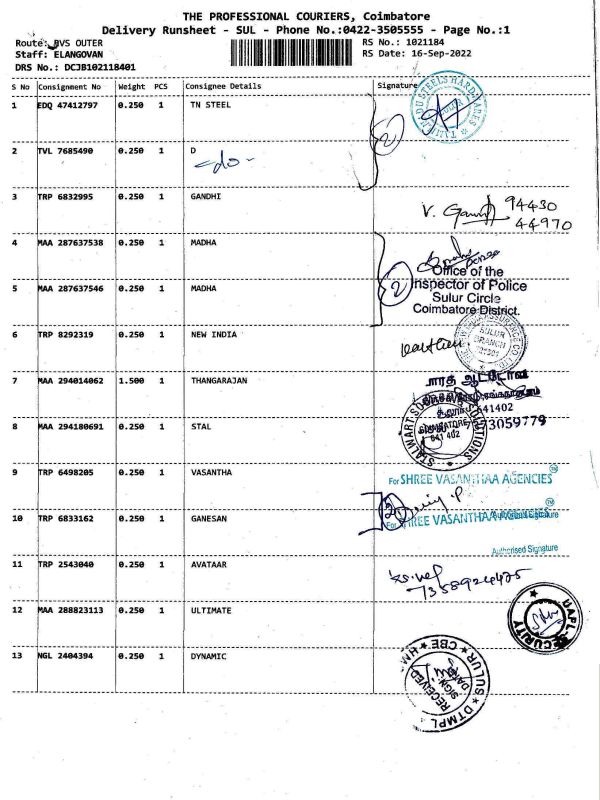 THE PROFESSIONAL COURIERS, Coimbatore
Delivery Runsheet - SUL - Phone No.:0422-3505555 - Page No.:1
Route: BVS OUTER RS No.: 1021184
Staff: ELANGOVAN RS Date: 16-Sep-2022
DRS No.: DCJB102118401
S No Consignment No Weight PCS Consignee Details Signature
1 EDQ 47412797 0.250 1 TN STEEL
2 TVL 7685490 0.250 1 D
-do-
2
3 TRP 6832995 0.250 1 GANDHI
V. 94430
44970
4 MAA 287637538 0.250 1 MADHA
Office of the
5 MAA 287637546 0.250 1 MADHA
2
Inspector of Police
Sulur Circle
Coimbatore District.
6 TRP 8292319 0.250 1 NEW INDIA
SULUR
BRANCH
7 MAA 294014062 1.500 1 THANGARAJAN
641402
73059779
8 MAA 294180691 0.250 1 STAL
COIMBATORE
641 402
9 TRP 6498205 0.250 1 VASANTHA
For SHREE VASANTHAA AGENCIES
10 TRP 6833162 0.250 1 GANESAN
For SHREE VASANTHAA AGENCIES
Authorised Signature
Authorised Signature
11 TRP 2543040 0.250 1 AVATAAR
7358924475
12 MAA 288823113 0.250 1 ULTIMATE
UAPL
SECURITY
13 NGL 2404394 0.250 1 DYNAMIC
RECEIVED
SIGN
DATE
SULUR
DTMPL
CBE